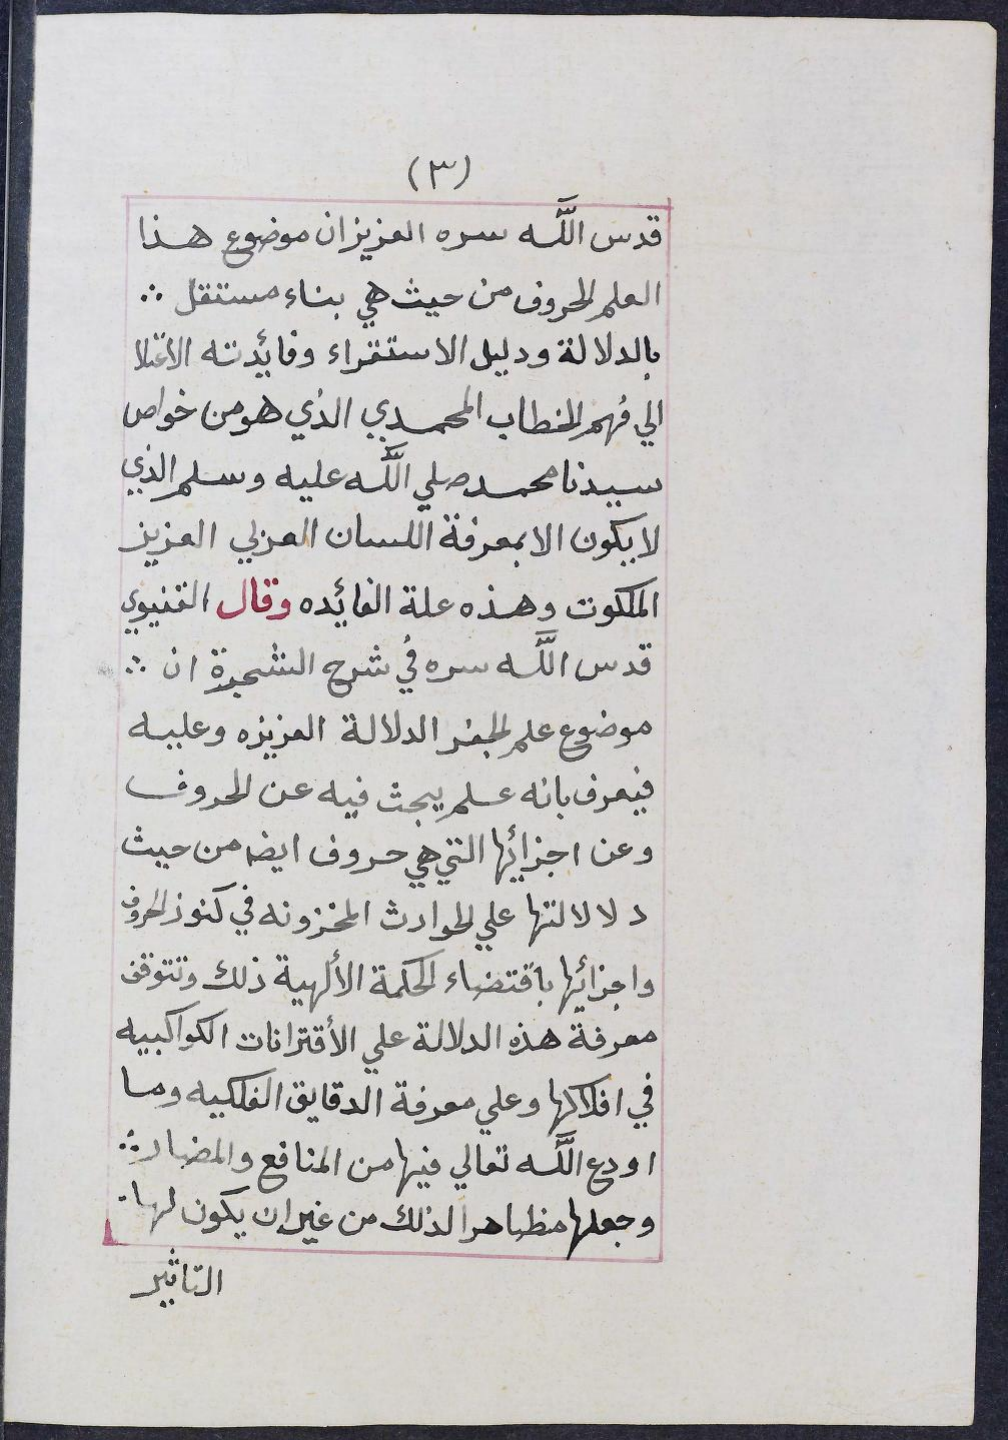 (٣)
قدس اللّه سره العزيز ان موضوع هذا
العلم الحروف من حيث هي بناء مستقل ∴
بالدلالة ودليل الاستقراء وفائدته الاعتلا
الي فهم الخطاب المحمدي الذي هو من خواص
سيدنا محمد صلي اللّه عليه وسلم الذي
لا يكون الا بمعرفة اللسان العربي العزيز
الملكوت وهذه علة الفائده وقال القنيوي
قدس اللّه سره في شرح الشجرة ان ∴
موضوع علم الجفر الدلالة العزيزه وعليه
فيعرف بانه علم يبحث فيه عن الحروف
وعن اجزائها التي هي حروف ايضه من حيث
دلالالتها علي الحوادث المخزونه في كنوز الحروف
واجزائها باقتضاء الحكمة الألهية ذلك وتتوقف
معرفة هذه الدلالة علي الأقترانات الكواكبيه
في افلاكها وعلي معرفة الدقايق الفلكيه وما
اودع اللّه تعالي فيها من المنافع والمضار ∴
وجعلها مظاهرا لذلك من غير ان يكون لها
التاثير